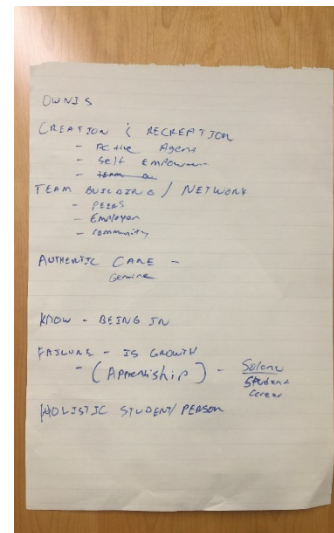 OWNIS
CREATION & RECREATION
- Active Agent
- Self Empower
TEAM BUILDING / NETWORK
- PEERS
- Employer
- community
AUTHENTIC CARE -
Genuine
KNOW - BEING IN
FAILURE - IS GROWTH
- (Apprenticeship) - Solano
Student
Career
HOLISTIC STUDENT/PERSON